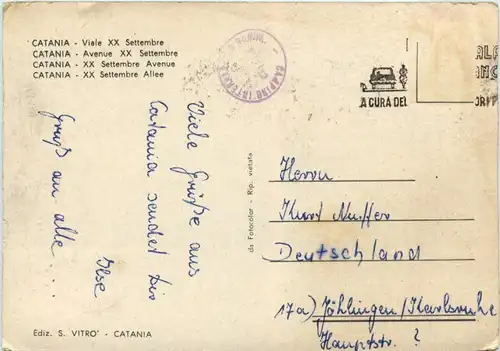 CATANIA - Viale XX Settembre
CATANIA - Avenue XX Settembre
CATANIA - XX Settembre Avenue
CATANIA - XX Settembre Allee
A CURA DEL
Viele Grüße aus
Catania sendet Dir
Ilse
Gruß an alle ...
da Fotocolor - Rip. vietata
Herrn
Kurt
Deutschland
17a) Jöhlingen/Karlsruhe
Hauptstr. ?
Ediz. S. VITRO' - CATANIA